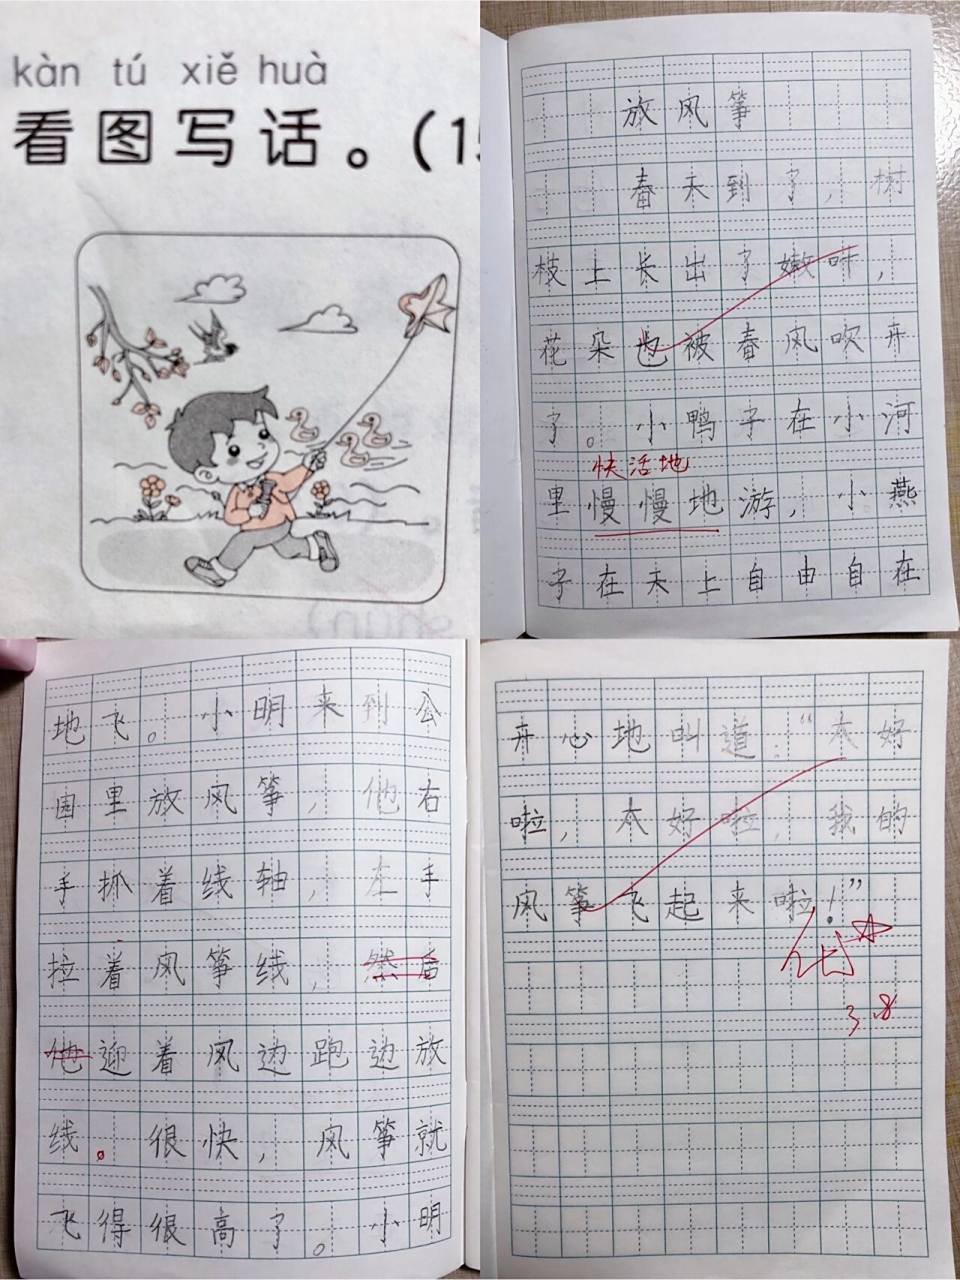 kàn tú xiě huà
看图写话。(15
放风筝
春天到了，树
枝上长出了嫩叶，
花朵也被春风吹开
了。小鸭子在小河
快活地
里慢慢地游，小燕
子在天上自由自在
地飞。小明来到公
园里放风筝，他右
手抓着线轴，左手
拉着风筝线，然后
他迎着风边跑边放
线。很快，风筝就
飞得很高了。小明
开心地叫道：“太好
啦，太好啦，我的
风筝飞起来啦！”
优
3.8